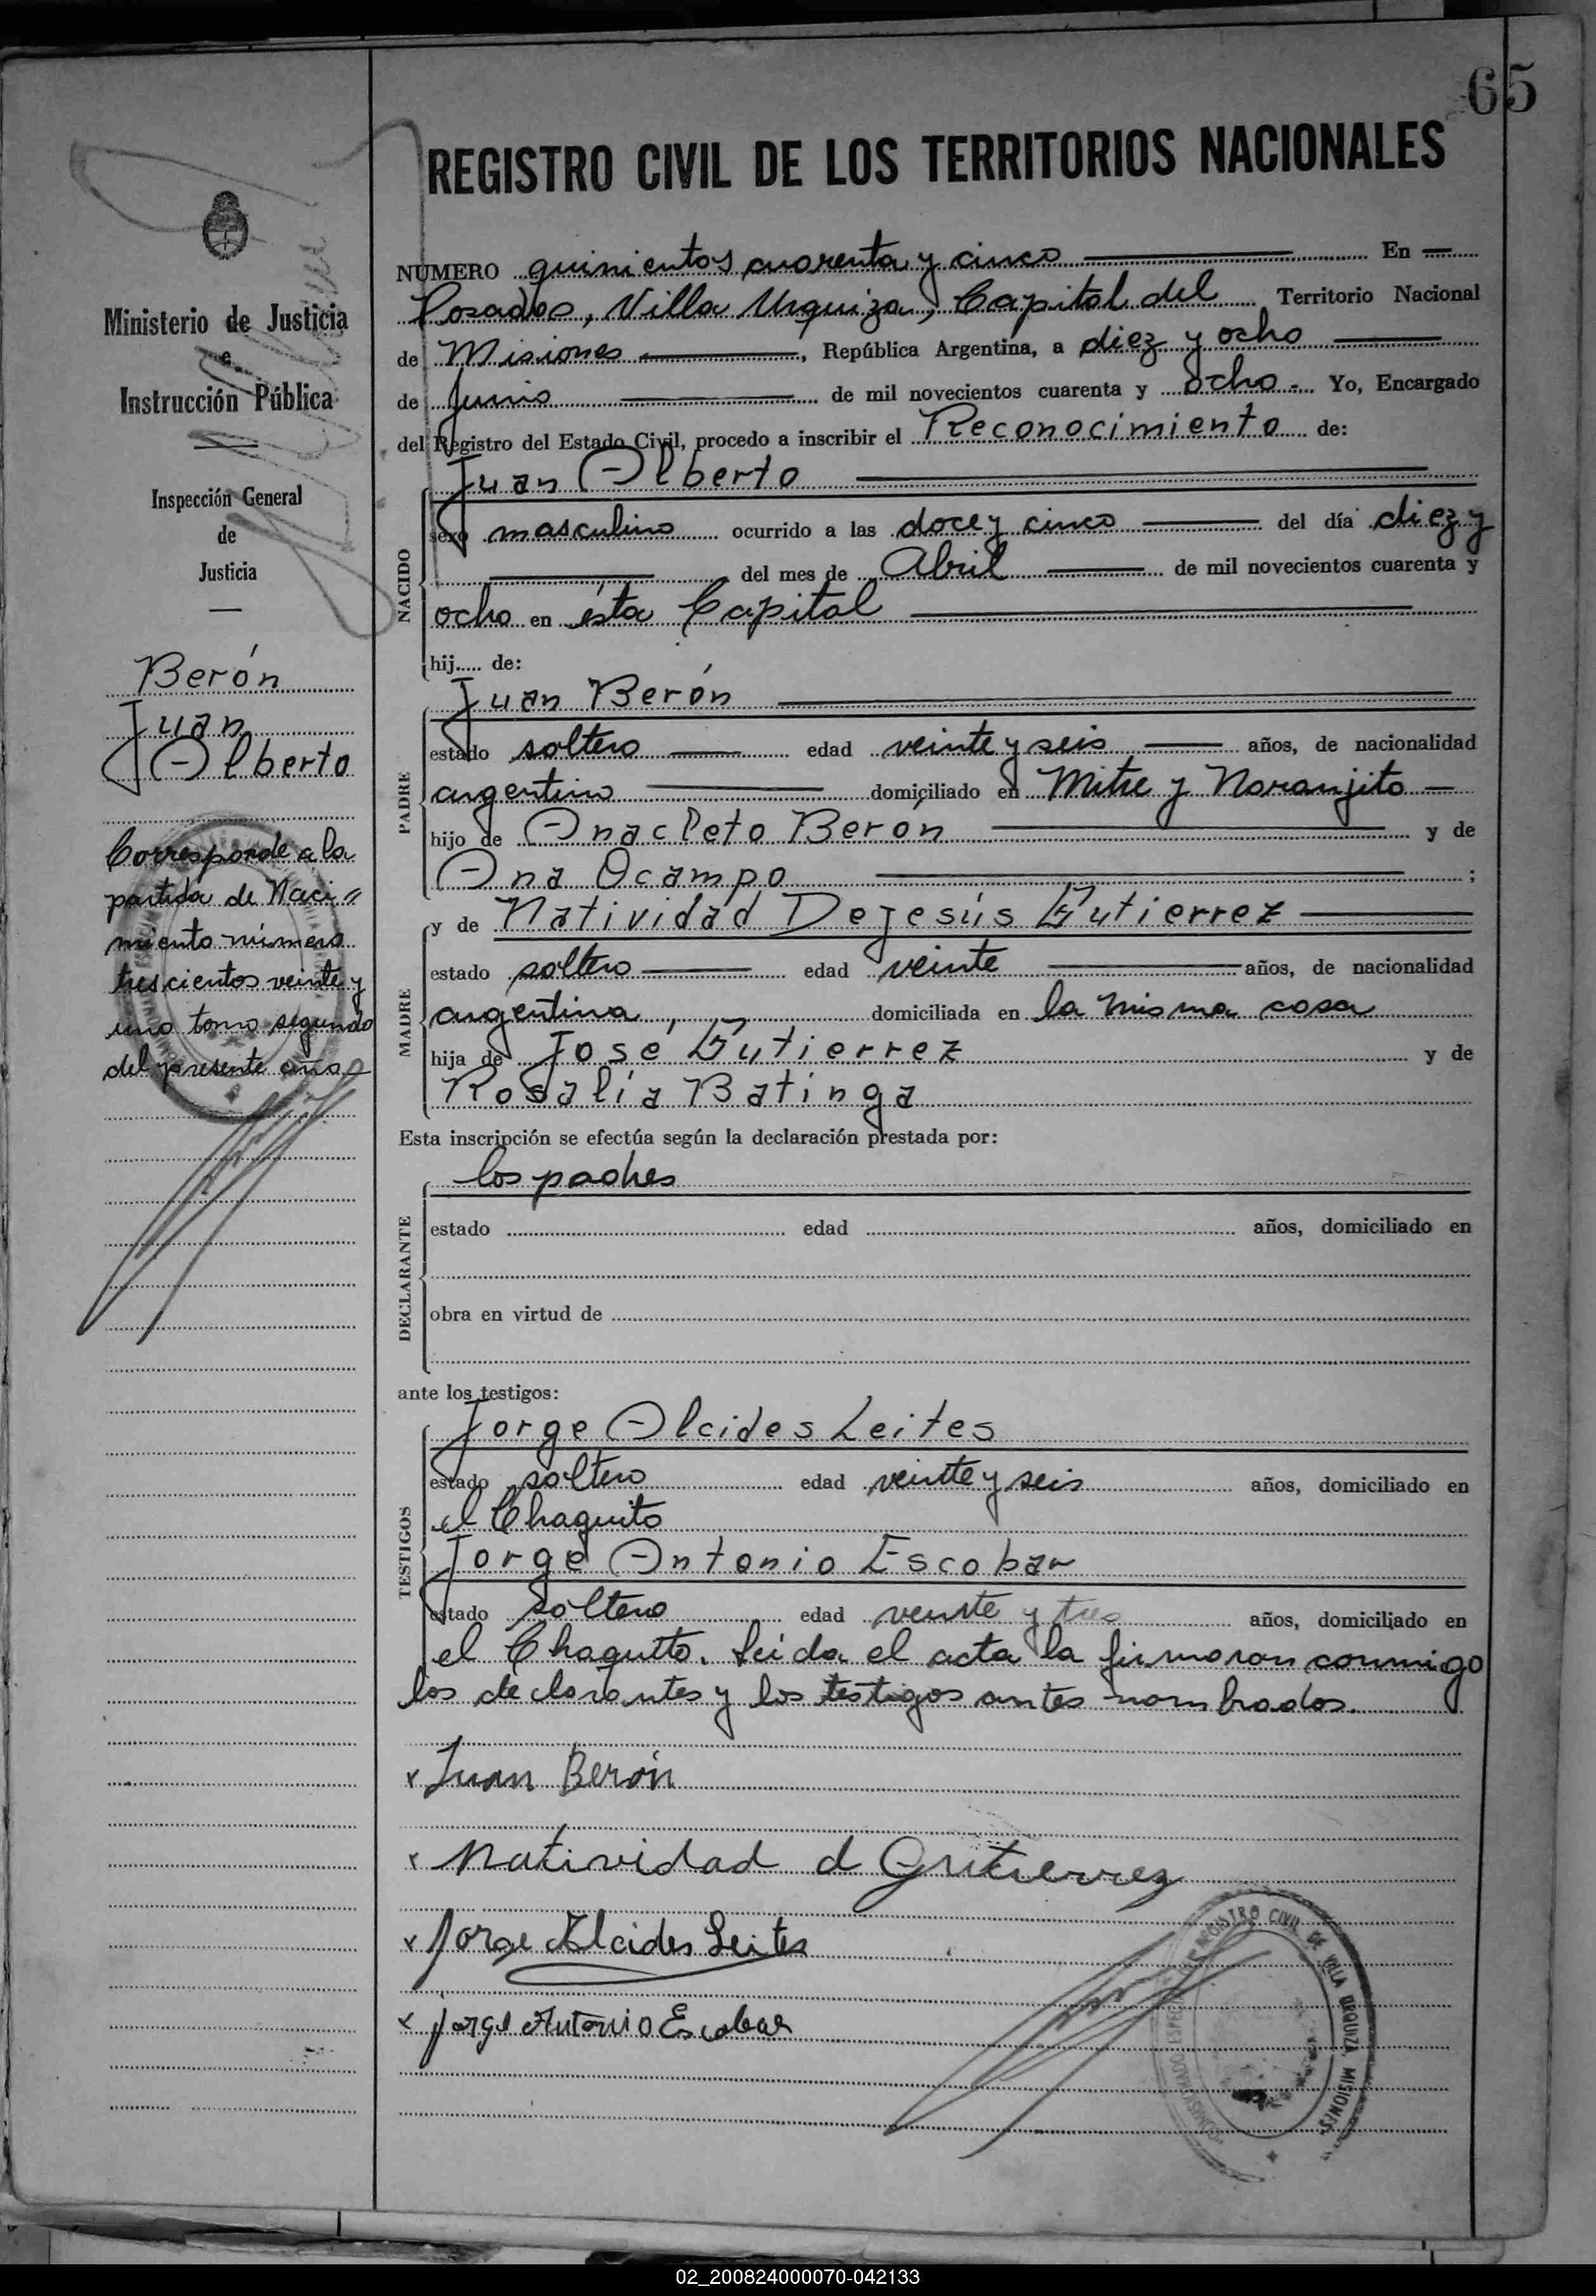 65
REGISTRO CIVIL DE LOS TERRITORIOS NACIONALES
Ministerio de Justicia
e
Instrucción Pública
Inspección General
de
Justicia
Berón
Juan
Alberto
Corresponde a la
partida de Naci=
miento número
trescientos veinte y
uno tomo segundo
del presente año
NUMERO quinientos cuarenta y cinco En
Posadas, Villa Urquiza, Capital del Territorio Nacional
de Misiones, República Argentina, a diez y ocho
de Junio de mil novecientos cuarenta y ocho.- Yo, Encargado
del Registro del Estado Civil, procedo a inscribir el Reconocimiento de:
Juan Alberto
NACIDO
sexo masculino ocurrido a las doce y cinco del día diez y
del mes de Abril de mil novecientos cuarenta y
ocho en ésta Capital
hij..... de:
Juan Berón
PADRE
estado soltero edad veinte y seis años, de nacionalidad
argentino domiciliado en Mitre y Naranjito
hijo de Anacleto Berón y de
Ana Ocampo ;
y de Natividad Dejesús Gutierrez
MADRE
estado soltero edad veinte años, de nacionalidad
argentina, domiciliada en la misma casa
hija de José Gutierrez y de
Rosalía Batinga
Esta inscripción se efectúa según la declaración prestada por:
los padres
DECLARANTE
estado edad años, domiciliado en
obra en virtud de
ante los testigos:
Jorge Alcides Leites
TESTIGOS
estado soltero edad veinte y seis años, domiciliado en
el Chaquito
Jorge Antonio Escobar
estado soltero edad veinte y tres años, domiciliado en
el Chaquito. Leida el acta la firmaron conmigo
los declarantes y los testigos antes nombrados.
x Juan Berón
x Natividad d Gutierrez
x Jorge Alcides Leites
x Jorge Antonio Escobar
REGISTRO CIVIL DE VILLA URQUIZA MISIONES
02_200824000070-042133